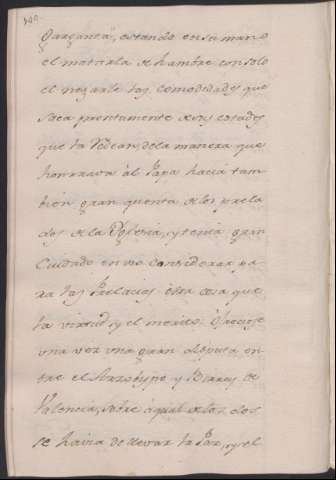 Garganta, estando en su mano
el matarla de hambre con solo
el negarle las comodidades que
saca prontamente de sus estados
que la rodean, de la manera que
honrrava al Papa hacia tam
bien gran quenta de los prela
dos de la Yglesia, y tenia gran
Cuidado en no considerar pa
ra las Prelacias otra cosa que
la virtud, y el merito: Ofreciose
una vez una gran disputa en
tre el Arzobispo y Virrey de
Valencia, sobre á qual de los dos
se havia de llevar la Paz, y el